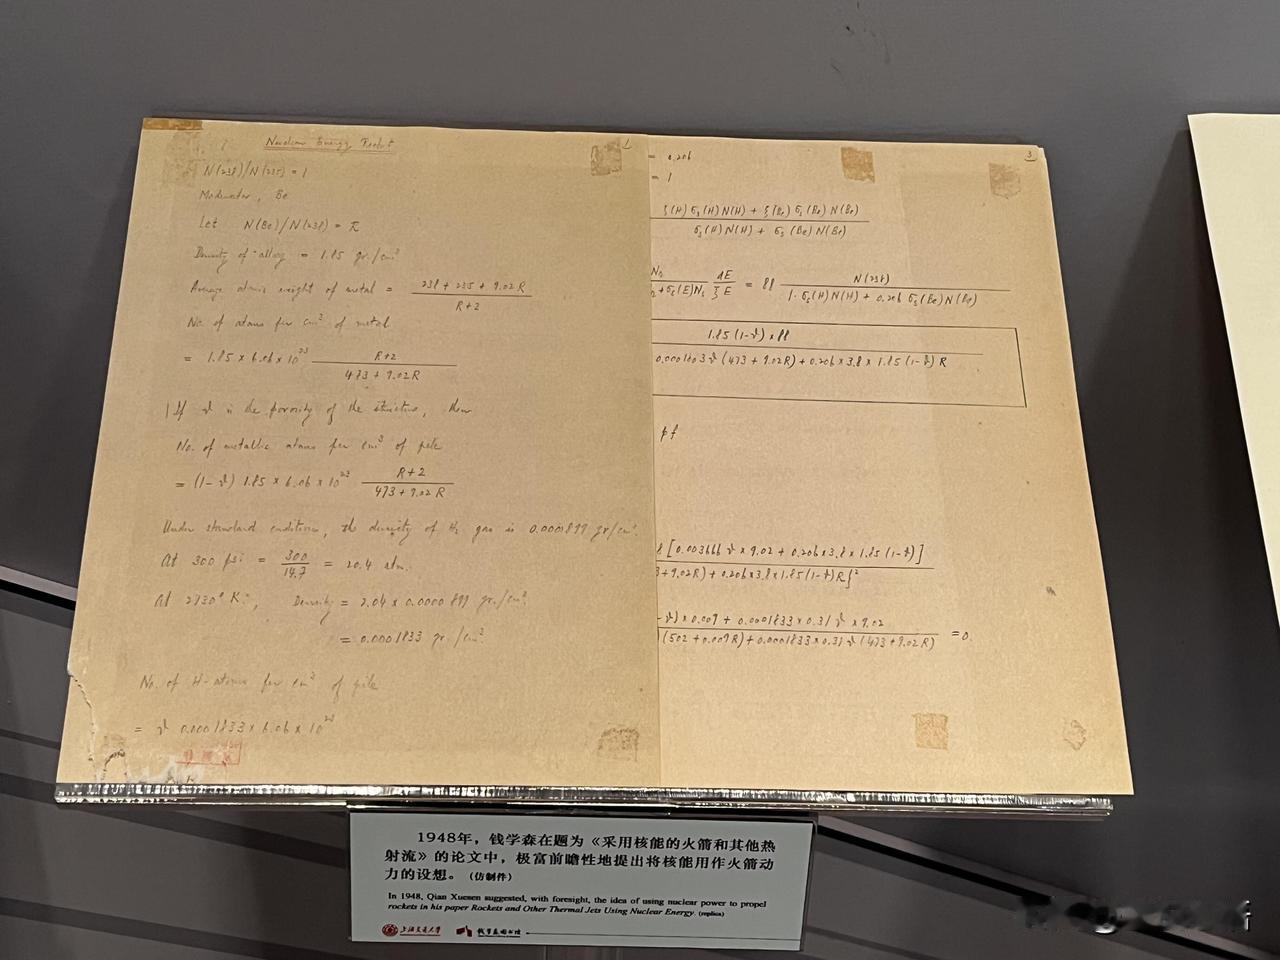 Nuclear Energy Rocket
1
N(238)/N(235) = 1
Moderator, Be
Let N(Be)/N(238) = R
Density of alloy = 1.85 gr./cm³
Average atomic weight of metal = (238 + 235 + 9.02 R)/(R+2)
No. of atoms per cm³ of metal
= 1.85 × 6.06 × 10²³ (R+2)/(473 + 9.02R)
If ϑ is the porosity of the structure, then
No. of metallic atoms per cm³ of pile
= (1-ϑ) 1.85 × 6.06 × 10²³ (R+2)/(473 + 9.02 R)
Under standard condition, the density of H₂ gas is 0.0000899 gr/cm³.
At 300 psi = 300/14.7 = 20.4 atm.
At 2730° K, Density = 2.04 × 0.0000899 gr./cm³
= 0.0001833 gr./cm³
No. of H-atoms per cm³ of pile
= ϑ 0.0001833 × 6.06 × 10²³
3
= 0.206
= 1
ξ(H) σs(H) N(H) + ξ(Be) σs(Be) N(Be)
σs(H) N(H) + σs(Be) N(Be)
dE/ξE = 88 N(238)/(1·σs(H)N(H) + 0.206 σs(Be)N(Be))
1.85 (1-ϑ) × 88
0.0001803 ϑ (473 + 9.02R) + 0.206 × 3.8 × 1.85 (1-ϑ) R
pf
[0.003666 ϑ × 9.02 + 0.206 × 3.8 × 1.85 (1-ϑ)]
+ 9.02R) + 0.206 × 3.8 × 1.85 (1-ϑ) R}²
-ϑ) × 0.009 + 0.0001833 × 0.31 ϑ × 9.02
(502 + 0.009R) + 0.0001833 × 0.31 ϑ (473 + 9.02R) = 0.
1948年，钱学森在题为《采用核能的火箭和其他热
射流》的论文中，极富前瞻性地提出将核能用作火箭动
力的设想。（仿制件）
In 1948, Qian Xuesen suggested, with foresight, the idea of using nuclear power to propel
rockets in his paper Rockets and Other Thermal Jets Using Nuclear Energy. (replica)
上海交通大学 钱学森图书馆